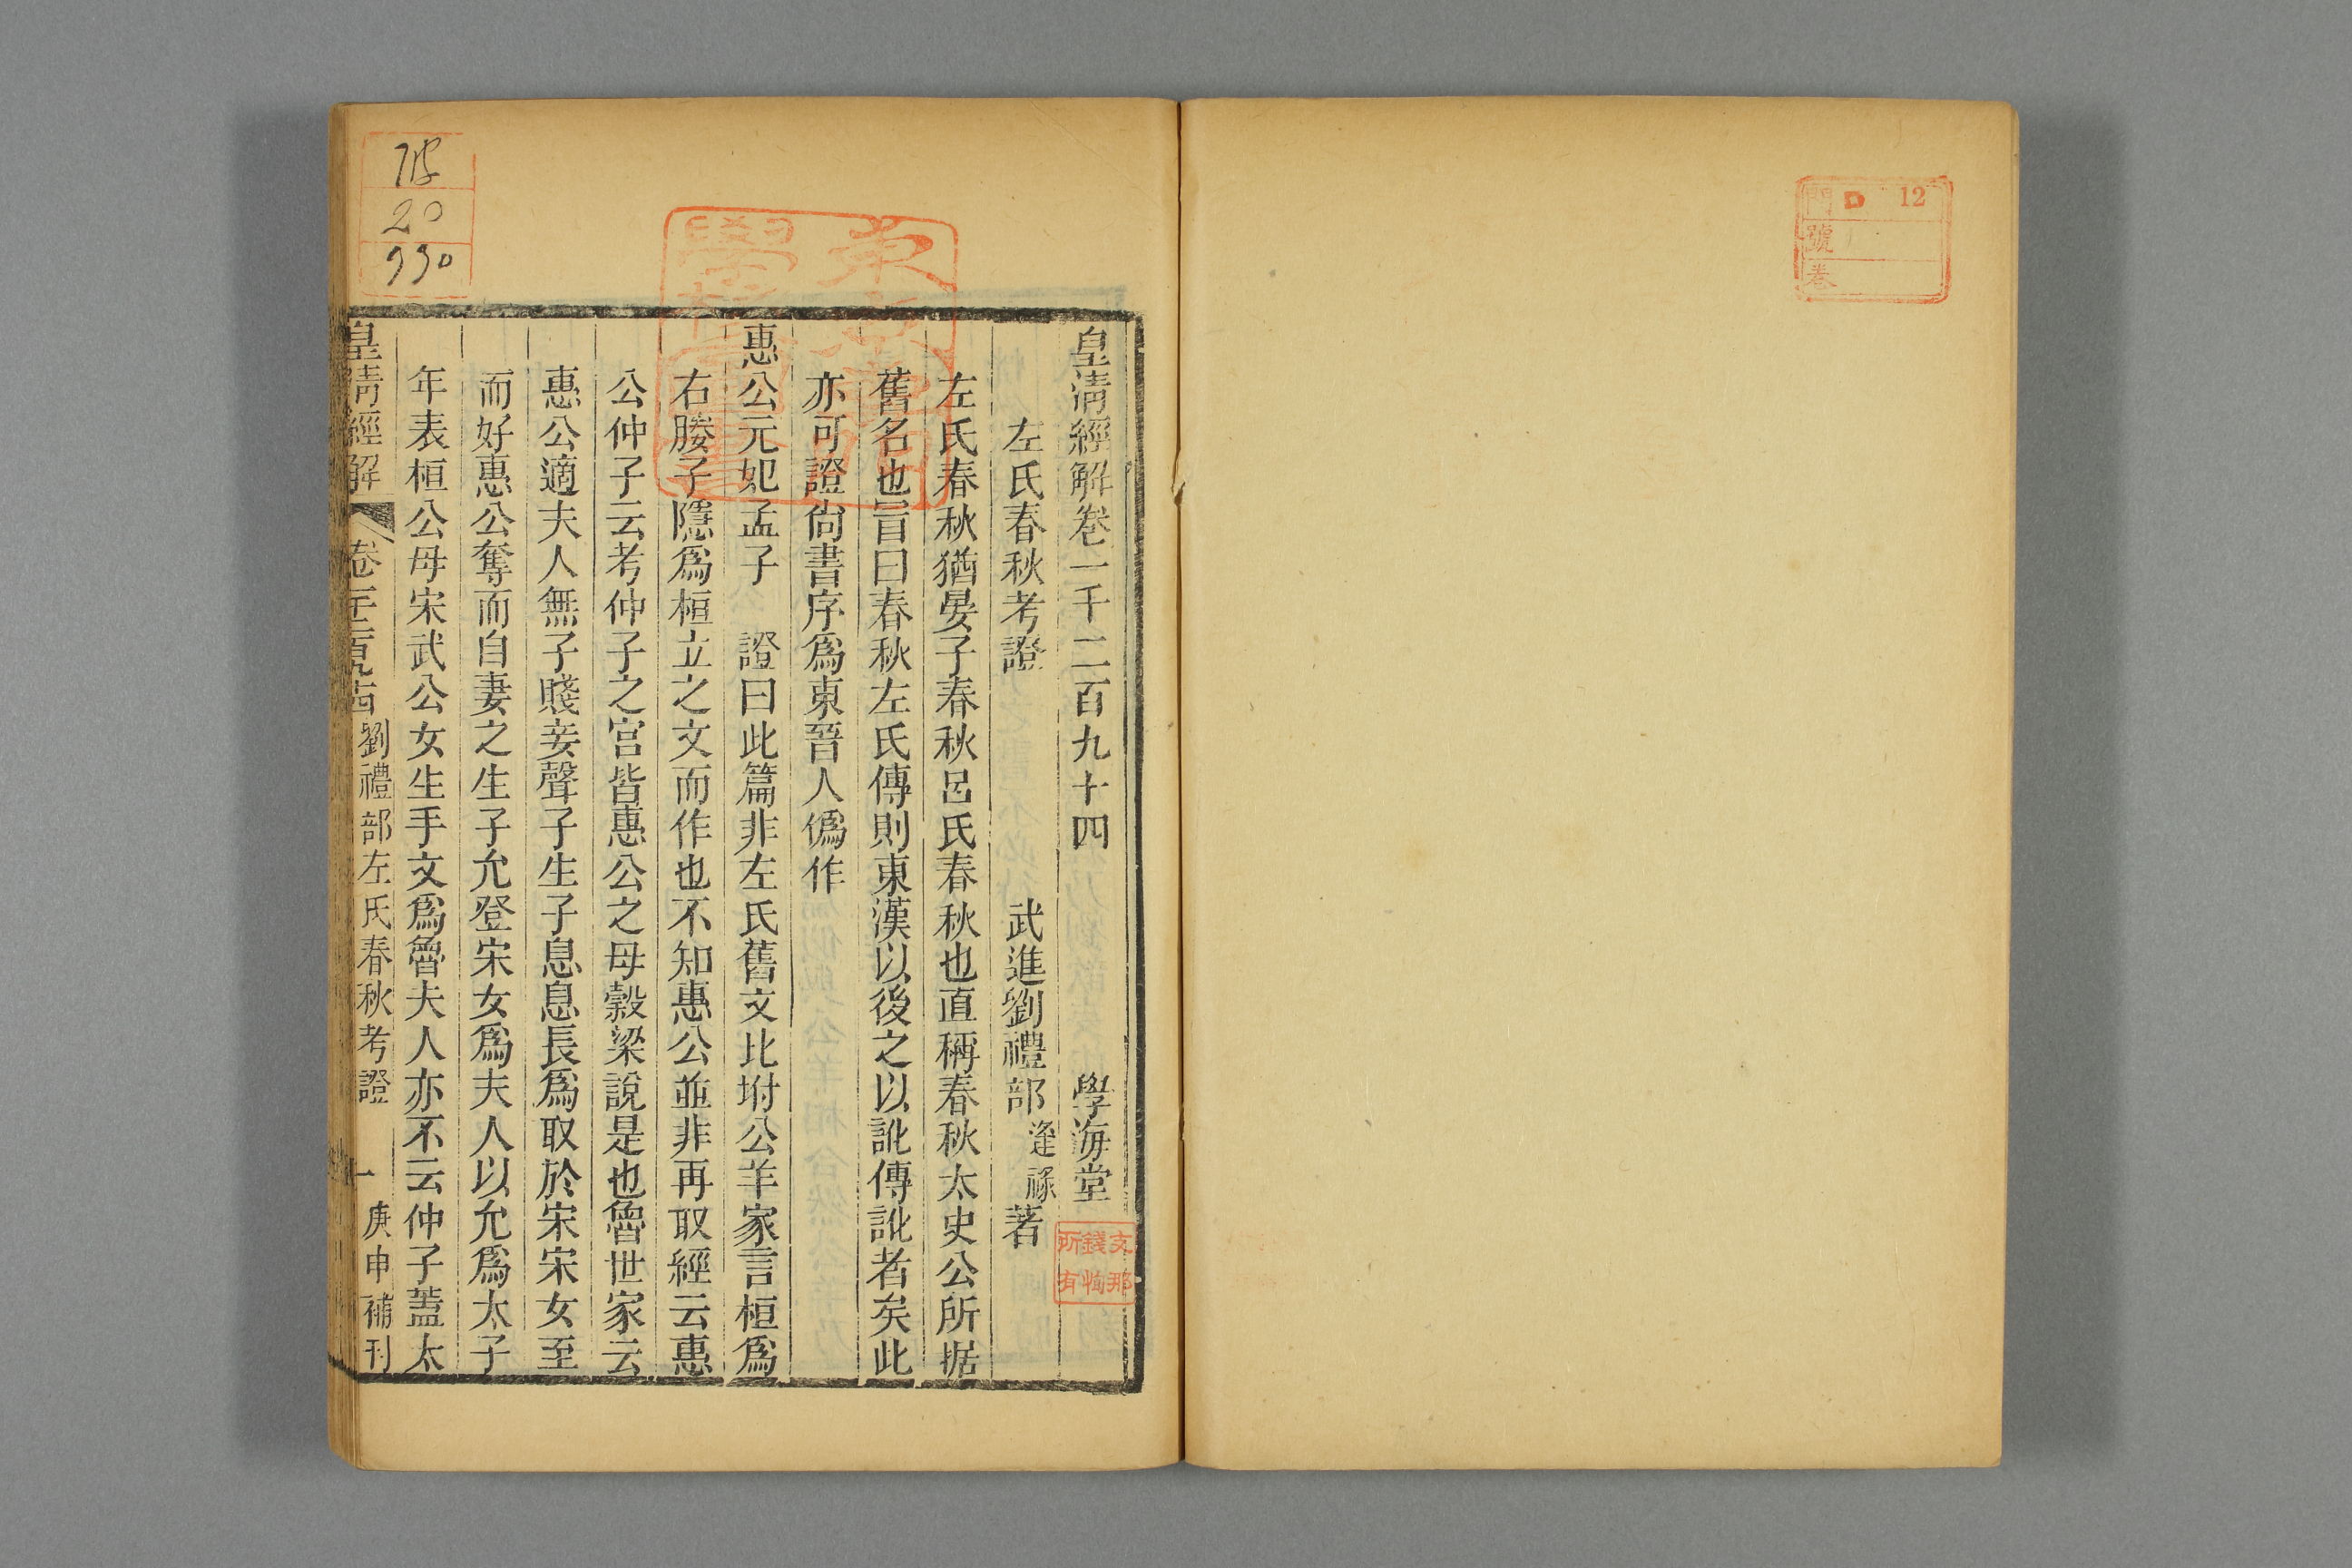 門 D 12
號
卷
皇淸經解卷一千二百九十四 學海堂
左氏春秋考證 武進劉禮部逢祿著
左氏春秋猶晏子春秋呂氏春秋也直稱春秋太史公所据
舊名也冒曰春秋左氏傳則東漢以後之以訛傳訛者矣此
亦可證尙書序爲東晉人僞作
惠公元妃孟子 證曰此篇非左氏舊文比坿公羊家言桓爲
右媵子隱爲桓立之文而作也不知惠公並非再取經云惠
公仲子云考仲子之宮皆惠公之母穀梁說是也魯世家云
惠公適夫人無子賤妾聲子生子息息長爲取於宋宋女至
而好惠公奪而自妻之生子允登宋女爲夫人以允爲太子
年表桓公母宋武公女生手文爲魯夫人亦不云仲子蓋太
皇淸經解 卷千二百九十四 劉禮部左氏春秋考證 一 庚申補刊
20
930